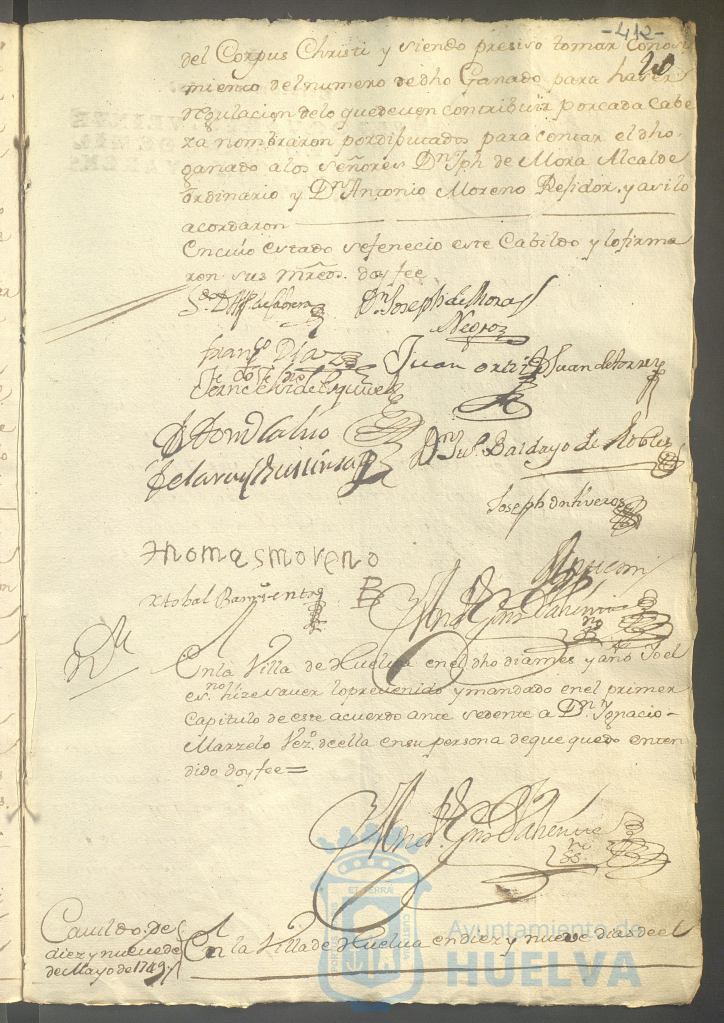 -412-
del Corpus Christi y siendo presiso tomar Conosi
miento del numero de dho Ganado para haver
regulacion delo quedeven contribuir porcada Cabe
za nombraron pordiputados para contar el dho
ganado a los señores Dn. Jph de Mora Alcalde
ordinario y Dn. Antonio Moreno Rexidor. y asi lo
acordaron
En cuio estado sefenecio este Cabildo y lo firma
ron sus mrds. doy fee
Dn. Joseph de Mora
Negro
Franco. Diaz
Juan Ortiz
D Juan de torres
Dn. Jul. Bardayo de Robles
Joseph Ontiveros
Thomas moreno
Xtobal Barrientos
En la Villa de Huelva en el dho dia mes y año Yo el
es.no hize saver lo prevenido y mandado en el primer
Capitulo de este acuerdo ante sedente a Dn. Ygnacio
Marzelo Vezo. de ella en su persona de que quedo enten
dido doy fee=
Cavildo de
diez y nueve de
de Mayo de 1749
En la Villa de Huelva en diez y nueve dias de el
Ayuntamiento de
HUELVA